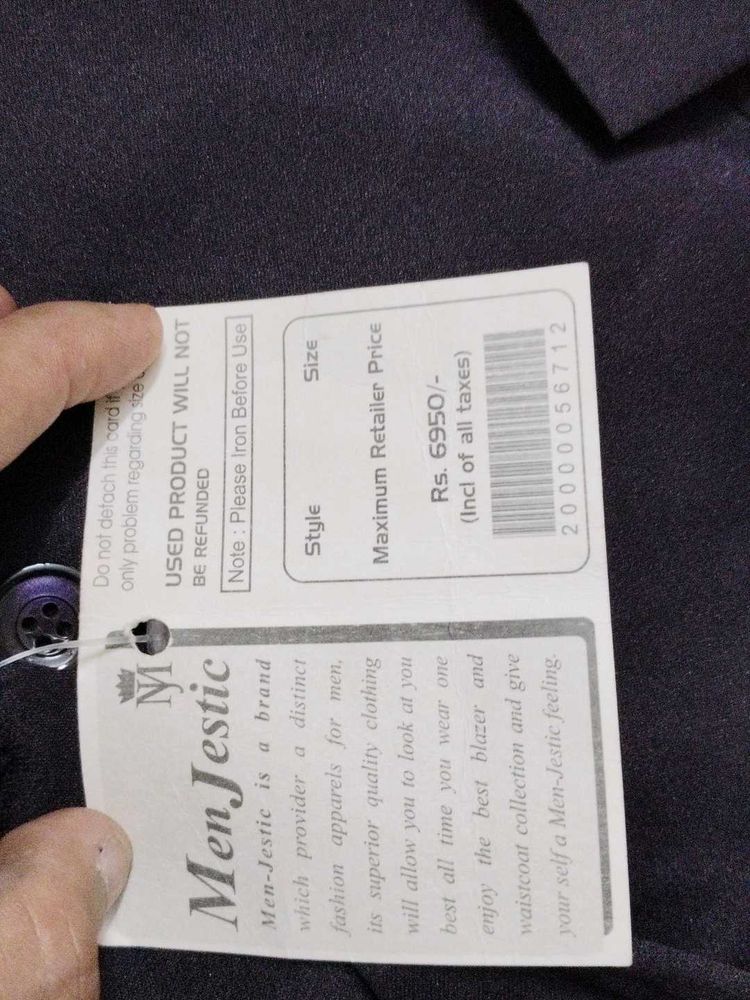 Do not detach this card if
only problem regarding size
USED PRODUCT WILL NOT
BE REFUNDED
Note : Please Iron Before Use
Style Size
Maximum Retailer Price
Rs. 6950/-
(Incl of all taxes)
2000000056712
MJ
MenJestic
Men-Jestic is a brand
which provider a distinct
fashion apparels for men,
its superior quality clothing
will allow you to look at you
best all time you wear one
enjoy the best blazer and
waistcoat collection and give
your self a Men-Jestic feeling.